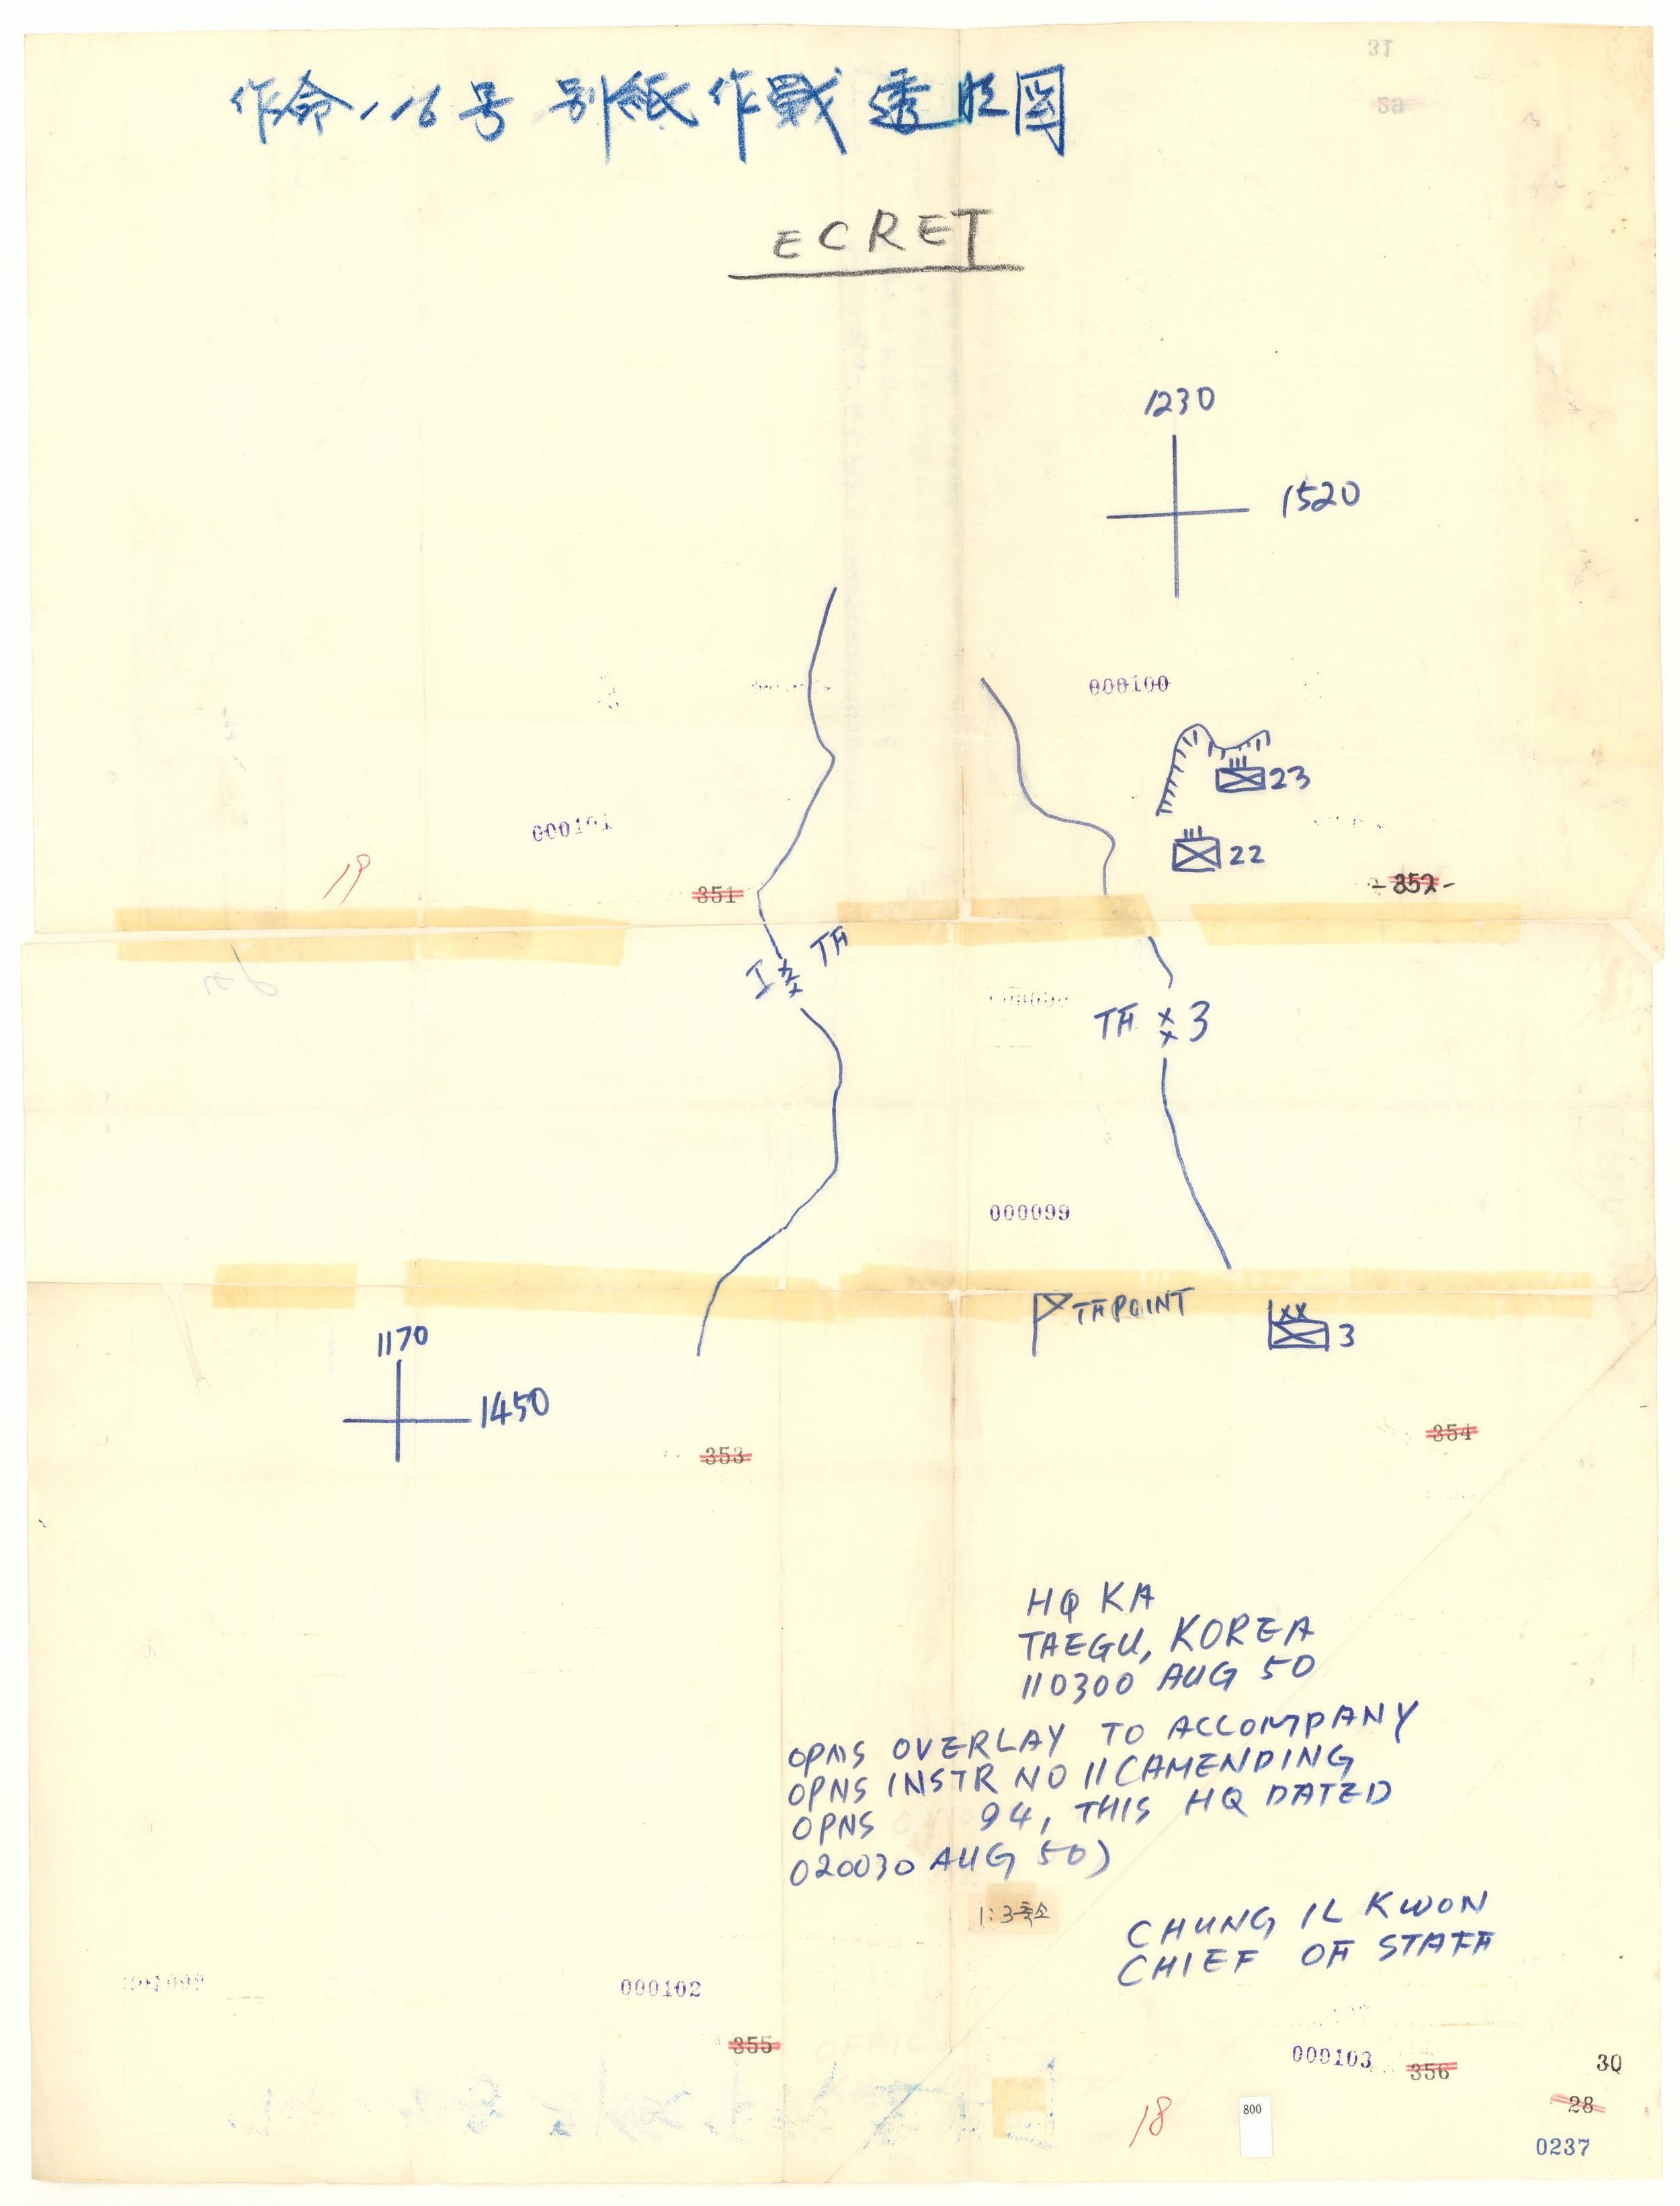 作命116号 別紙作戦透視図
ECRET
1230
1520
000100
23
22
000101
19
351
-352-
I TF
TF 3
000099
TF POINT
3
1170
1450
353
354
HQ KA
TAEGU, KOREA
110300 AUG 50
OPNS OVERLAY TO ACCOMPANY
OPNS INSTR NO 11(AMENDING
OPNS 94, THIS HQ DATED
020030 AUG 50)
1:3축소
CHUNG IL KWON
CHIEF OF STAFF
000102
355
000103
356
30
28
18
800
0237